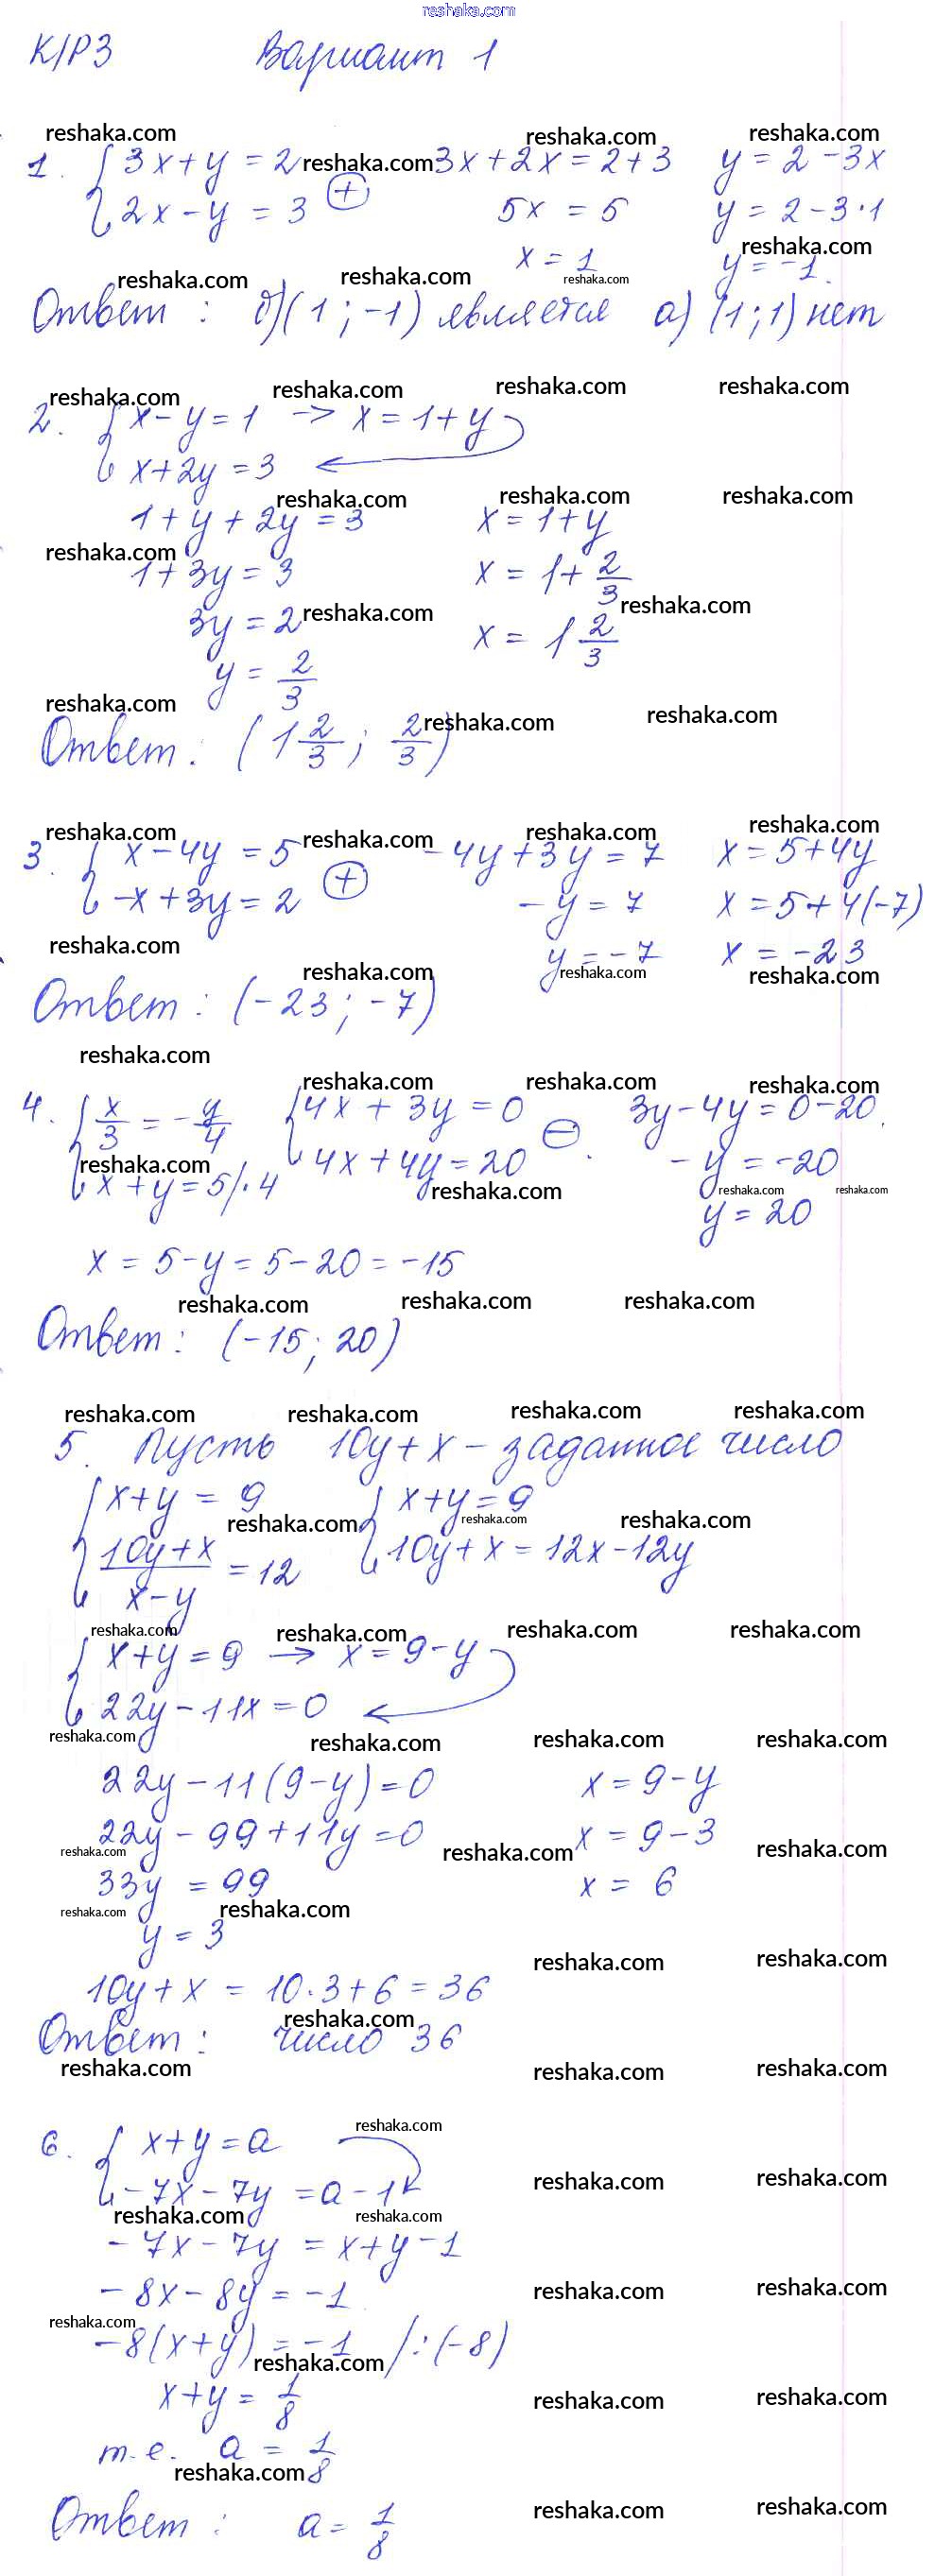 reshaka.com
К/Р3 Вариант 1
reshaka.com reshaka.com reshaka.com
1. { 3x + y = 2 reshaka.com 3x + 2x = 2 + 3 y = 2 - 3x
2x - y = 3 (+) 5x = 5 y = 2 - 3·1
x = 1 reshaka.com y = -1.
reshaka.com reshaka.com reshaka.com
Ответ: б) (1; -1) является а) (1; 1) нет
reshaka.com reshaka.com reshaka.com reshaka.com
2. { x - y = 1 → x = 1 + y
x + 2y = 3 ←
reshaka.com reshaka.com reshaka.com
1 + y + 2y = 3 x = 1 + y
reshaka.com
1 + 3y = 3 x = 1 + 2/3
3y = 2 reshaka.com reshaka.com
x = 1 2/3
y = 2/3
reshaka.com reshaka.com reshaka.com
Ответ: (1 2/3; 2/3)
reshaka.com reshaka.com reshaka.com reshaka.com
3. { x - 4y = 5 -4y + 3y = 7 x = 5 + 4y
-x + 3y = 2 (+) -y = 7 x = 5 + 4(-7)
reshaka.com y = -7 x = -23
reshaka.com reshaka.com reshaka.com
Ответ: (-23; -7)
reshaka.com
reshaka.com reshaka.com reshaka.com
4. { x/3 = -y/4 { 4x + 3y = 0 3y - 4y = 0 - 20.
reshaka.com 4x + 4y = 20 (−). -y = -20
x + y = 5 /·4 reshaka.com reshaka.com reshaka.com
y = 20
x = 5 - y = 5 - 20 = -15
reshaka.com reshaka.com reshaka.com
Ответ: (-15; 20)
reshaka.com reshaka.com reshaka.com reshaka.com
5. Пусть 10y + x - заданное число
{ x + y = 9 { x + y = 9
reshaka.com reshaka.com reshaka.com
(10y + x)/(x - y) = 12 10y + x = 12x - 12y
reshaka.com reshaka.com reshaka.com reshaka.com
{ x + y = 9 → x = 9 - y
22y - 11x = 0 ←
reshaka.com reshaka.com reshaka.com reshaka.com
22y - 11(9 - y) = 0 x = 9 - y
22y - 99 + 11y = 0 x = 9 - 3
reshaka.com reshaka.com reshaka.com
33y = 99 x = 6
reshaka.com reshaka.com
y = 3
reshaka.com reshaka.com
10y + x = 10·3 + 6 = 36
reshaka.com
Ответ: число 36
reshaka.com reshaka.com reshaka.com
reshaka.com
6. { x + y = a
-7x - 7y = a - 1
reshaka.com reshaka.com
reshaka.com reshaka.com
-7x - 7y = x + y - 1
-8x - 8y = -1
reshaka.com reshaka.com
reshaka.com
-8(x + y) = -1 /:(-8)
reshaka.com
x + y = 1/8
reshaka.com reshaka.com
т.е. a = 1/8
reshaka.com
Ответ: a = 1/8
reshaka.com reshaka.com